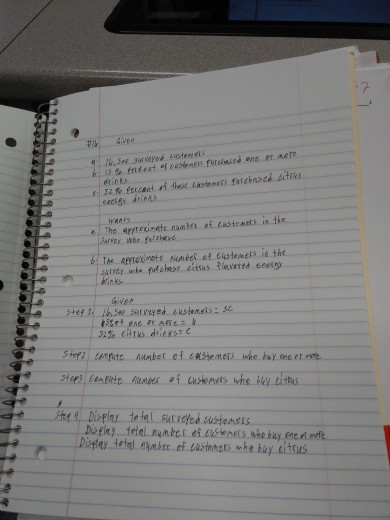 7
#16 Given
a. 16,500 surveyed customers
b. 15% percent of customers purchased one or more
drinks
c. 52% percent of those customers purchased citrus
energy drinks
wants
a. The approximate number of customers in the
survey who purchase
b. The approximate number of customers in the
survey who purchase citrus flavored energy
drinks
Given
Step 1: 16,500 surveyed customers = SC
one or more =
52% citrus drinks = C
Step 2 compute number of customers who buy one or more
Step 3 compute number of customers who buy citrus
Step 4 Display total surveyed customers
Display total number of customers who buy one or more
Display total number of customers who buy citrus